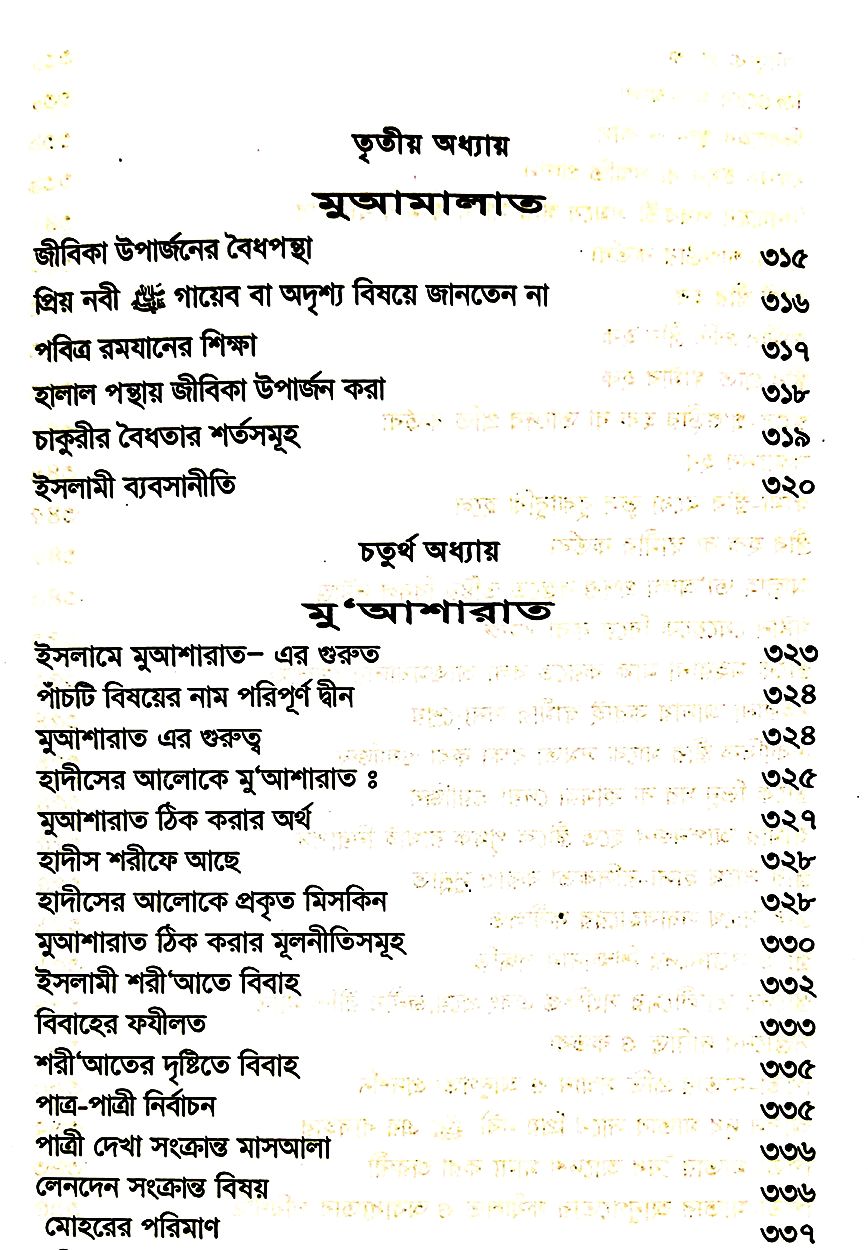 তৃতীয় অধ্যায়
মুআমালাত
জীবিকা উপার্জনের বৈধপন্থা ৩১৫
প্রিয় নবী ﷺ গায়েব বা অদৃশ্য বিষয়ে জানতেন না ৩১৬
পবিত্র রমযানের শিক্ষা ৩১৭
হালাল পন্থায় জীবিকা উপার্জন করা ৩১৮
চাকুরীর বৈধতার শর্তসমূহ ৩১৯
ইসলামী ব্যবসানীতি ৩২০
চতুর্থ অধ্যায়
মু‘আশারাত
ইসলামে মুআশারাত– এর গুরুত ৩২৩
পাঁচটি বিষয়ের নাম পরিপূর্ণ দ্বীন ৩২৪
মুআশারাত এর গুরুত্ব ৩২৪
হাদীসের আলোকে মু‘আশারাত ঃ ৩২৫
মুআশারাত ঠিক করার অর্থ ৩২৭
হাদীস শরীফে আছে ৩২৮
হাদীসের আলোকে প্রকৃত মিসকিন ৩২৮
মুআশারাত ঠিক করার মূলনীতিসমূহ ৩৩০
ইসলামী শরী‘আতে বিবাহ ৩৩২
বিবাহের ফযীলত ৩৩৩
শরী‘আতের দৃষ্টিতে বিবাহ ৩৩৫
পাত্র-পাত্রী নির্বাচন ৩৩৫
পাত্রী দেখা সংক্রান্ত মাসআলা ৩৩৬
লেনদেন সংক্রান্ত বিষয় ৩৩৬
মোহরের পরিমাণ ৩৩৭